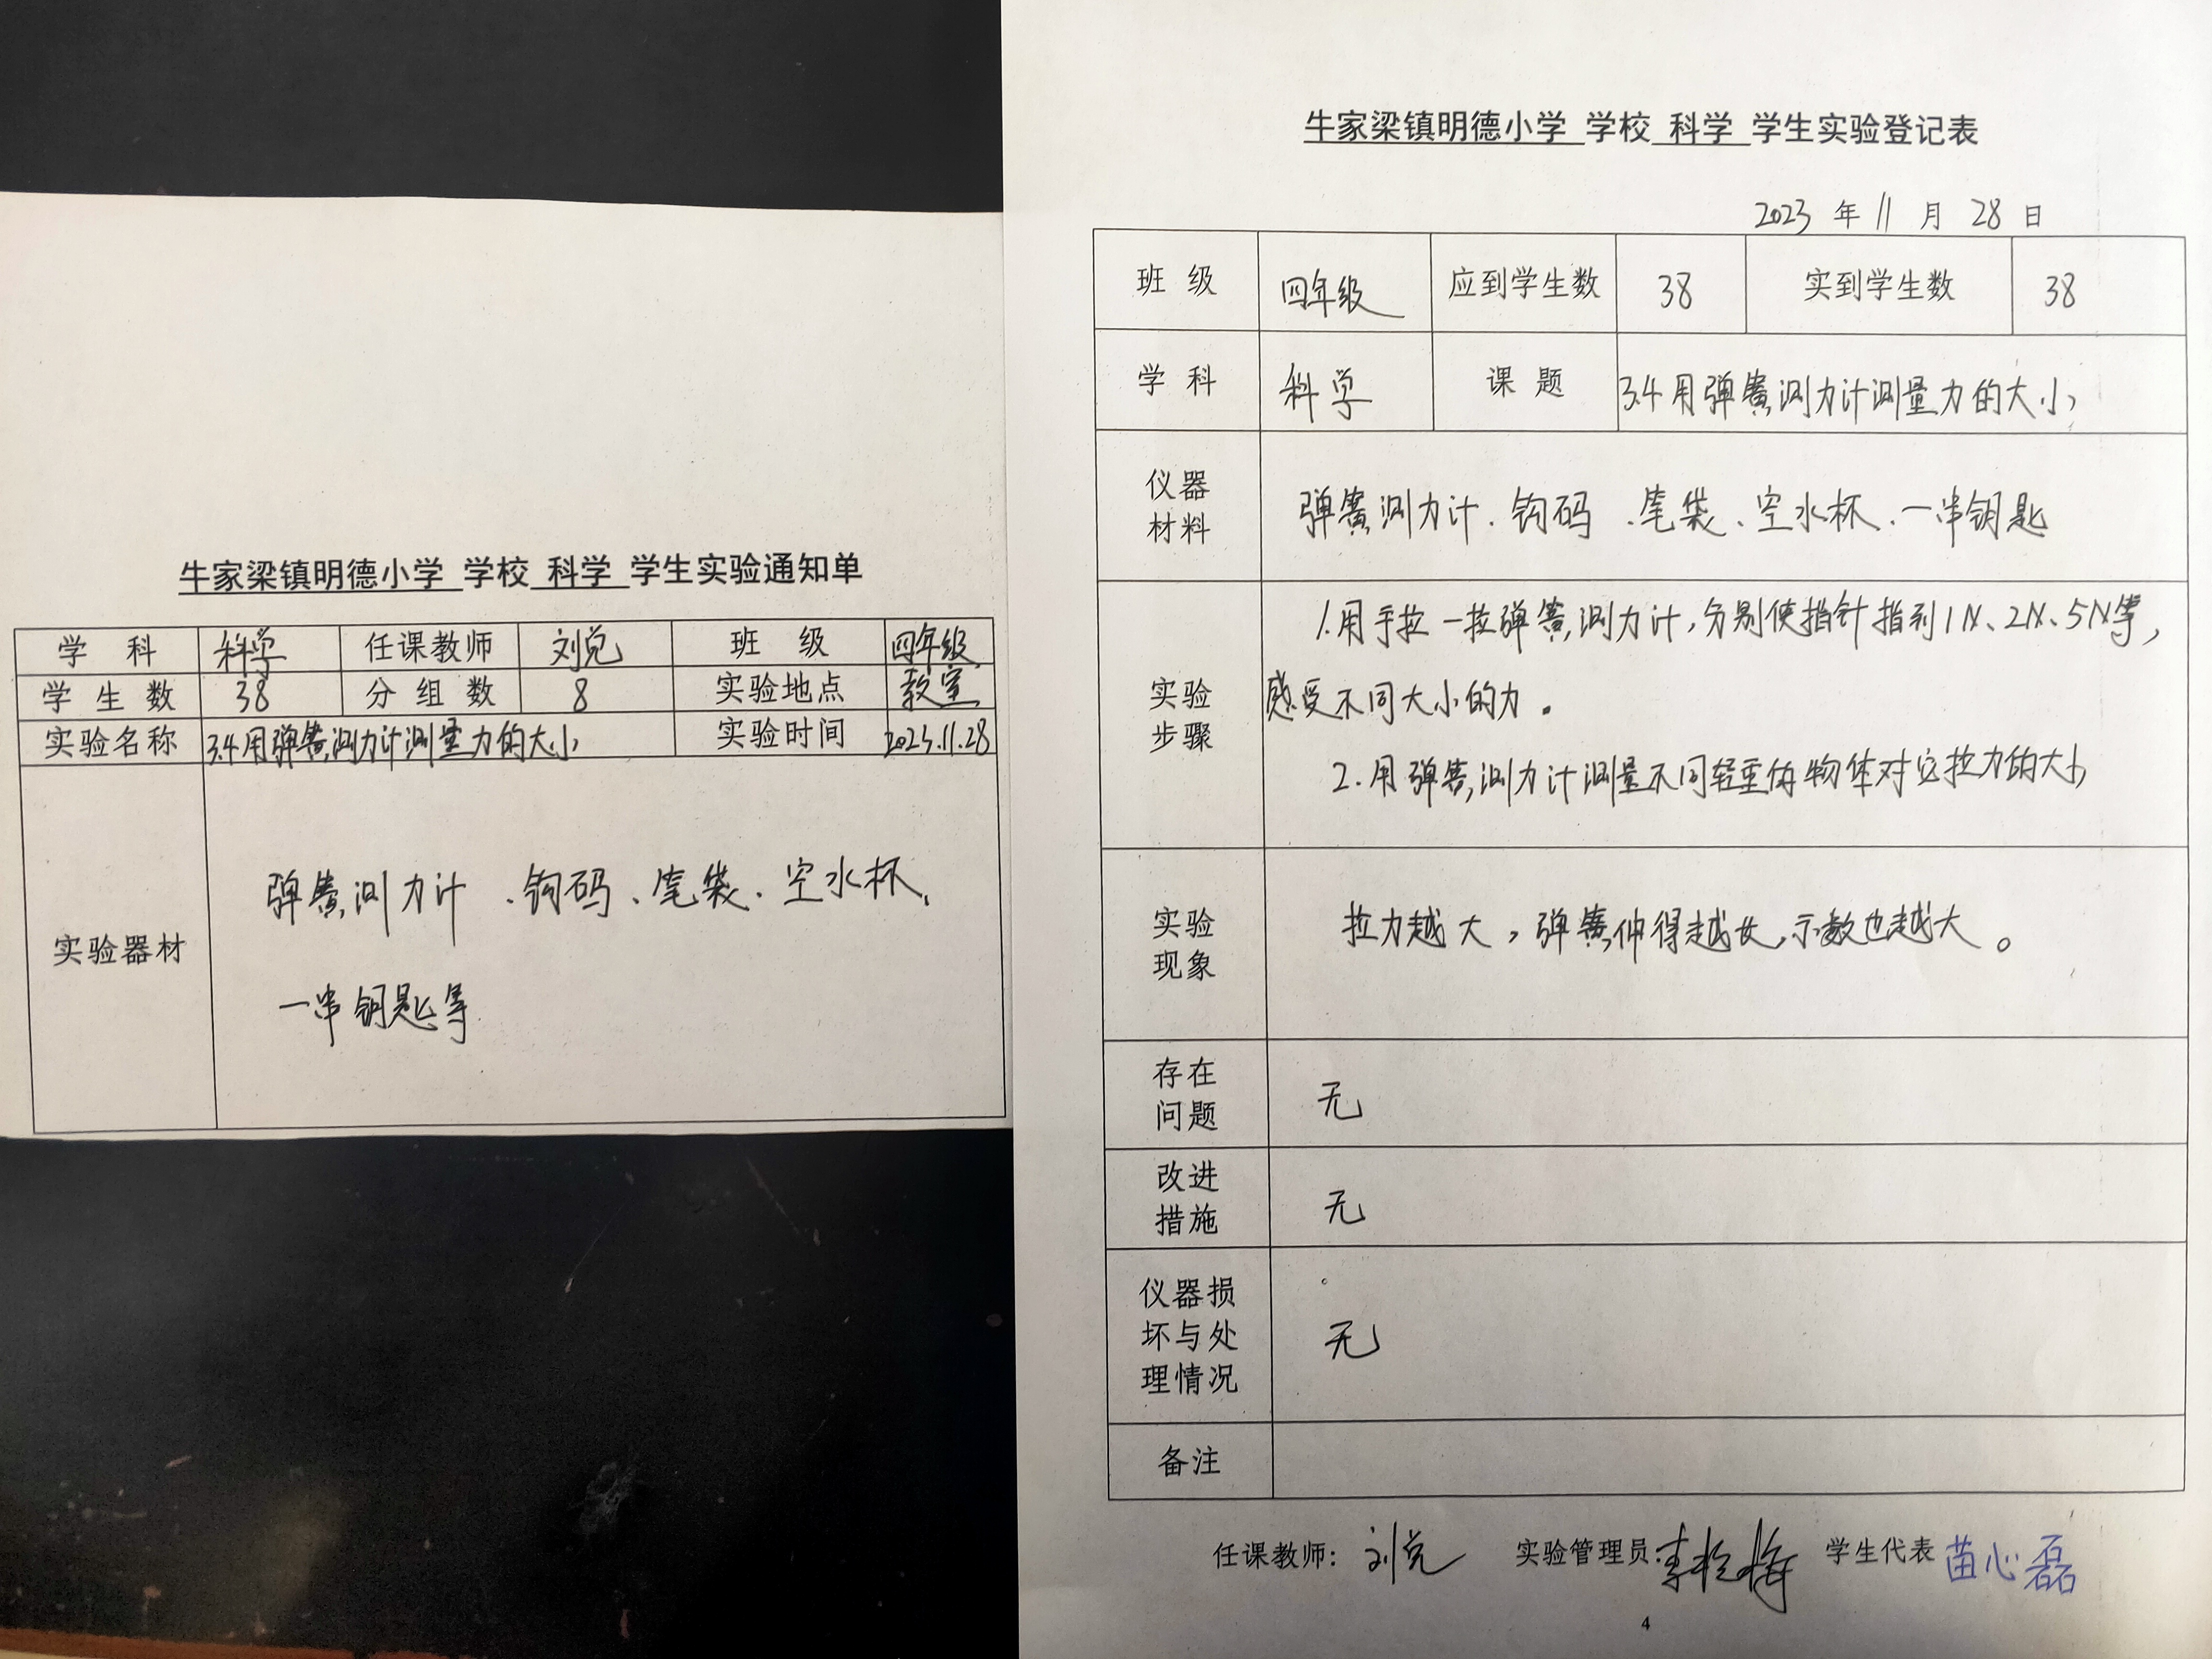 牛家梁镇明德小学 学校 科学 学生实验通知单
学 科 科学 任课教师 班 级 四年级
学 生 数 38 分 组 数 8 实验地点 教室
实验名称 3.4用弹簧测力计测量力的大小 实验时间 2023.11.28
实验器材
弹簧测力计、钩码、笔袋、空水杯、
一串钥匙等
牛家梁镇明德小学 学校 科学 学生实验登记表
2023 年 11 月 28 日
班 级 四年级 应到学生数 38 实到学生数 38
学 科 科学 课 题 3.4用弹簧测力计测量力的大小
仪器
材料
弹簧测力计、钩码、笔袋、空水杯、一串钥匙
实验
步骤
1.用手拉一拉弹簧测力计,分别使指针指到1N、2N、5N等,
感受不同大小的力。
2.用弹簧测力计测量不同轻重的物体对它拉力的大小
实验
现象
拉力越大,弹簧伸得越长,示数也越大。
存在
问题
无
改进
措施
无
仪器损
坏与处
理情况
无
备注
任课教师: 实验管理员: 学生代表 苗心磊
4